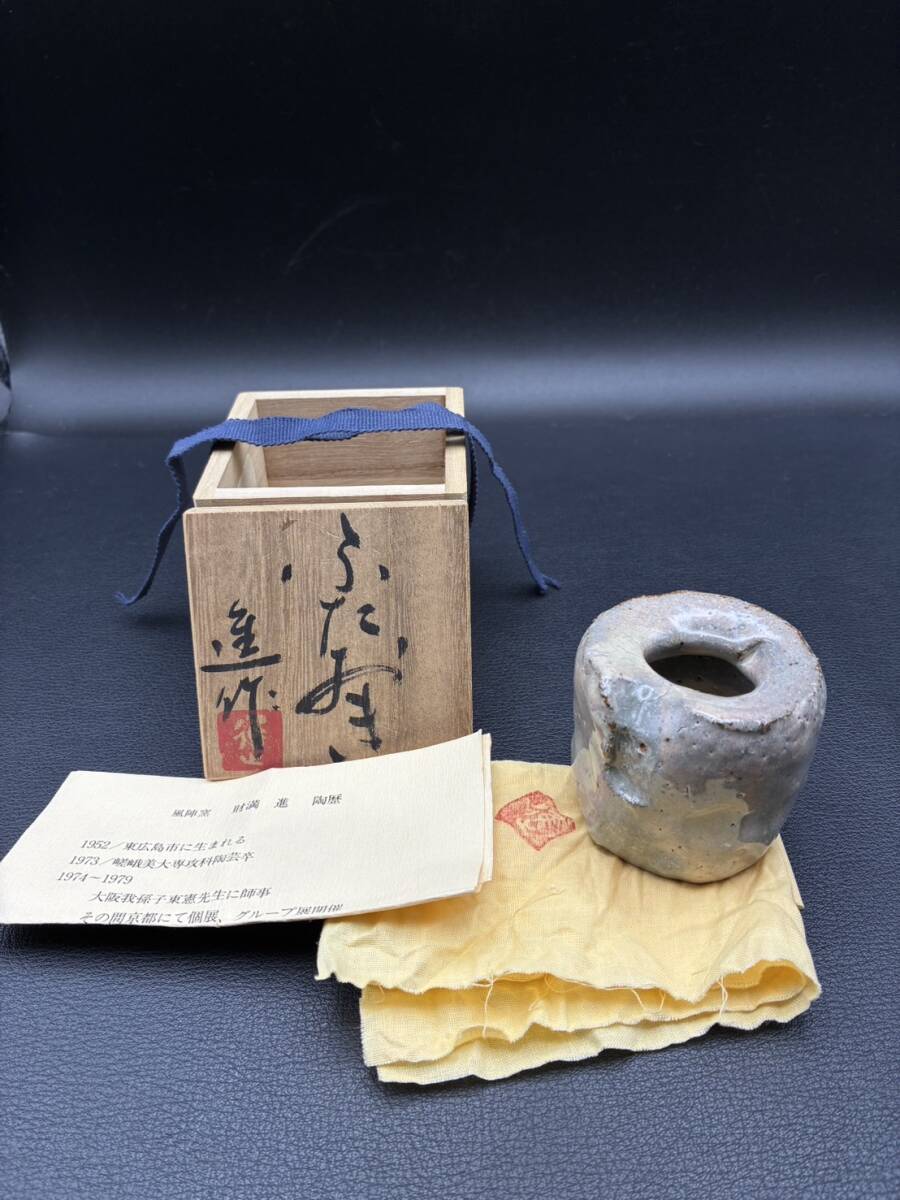 ふたおき
進作
風陣窯 財満 進 陶歴
1952/東広島市に生まれる
1973/嵯峨美大専攻科陶芸卒
1974～1979
大阪我孫子東憲先生に師事
その間京都にて個展、グループ展開催